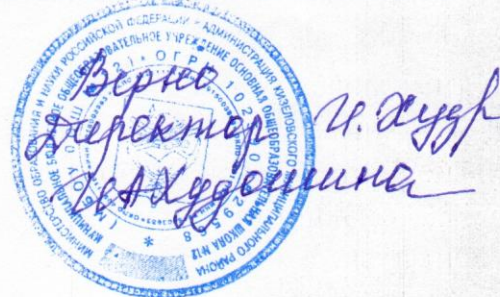 МИНИСТЕРСТВО ОБРАЗОВАНИЯ И НАУКИ РОССИЙСКОЙ ФЕДЕРАЦИИ * АДМИНИСТРАЦИЯ КИЗЕЛОВСКОГО МУНИЦИПАЛЬНОГО РАЙОНА
МУНИЦИПАЛЬНОЕ БЮДЖЕТНОЕ ОБЩЕОБРАЗОВАТЕЛЬНОЕ УЧРЕЖДЕНИЕ ОСНОВНАЯ ОБЩЕОБРАЗОВАТЕЛЬНАЯ ШКОЛА №12
Верно
Директор И. Худ
И.А.Худошина